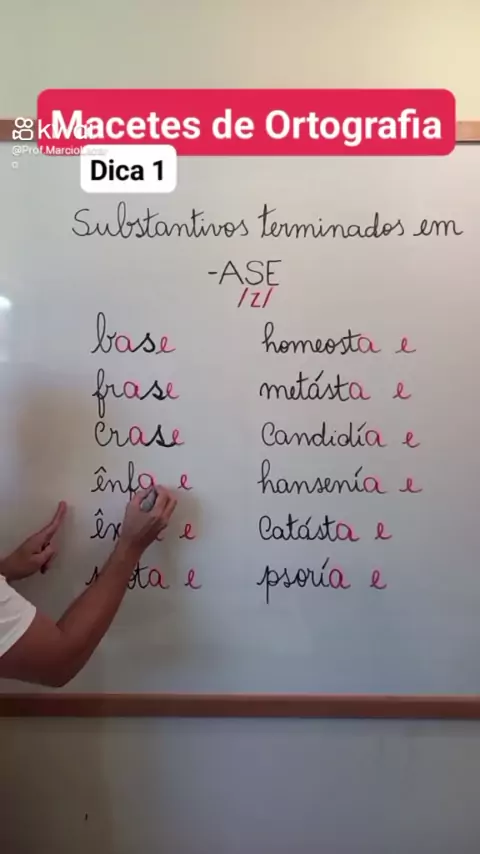 Macetes de Ortografia
Dica 1
Substantivos terminados em
-ASE
/z/
base homeosta e
frase metásta e
crase Candidía e
ênfa e hansenía e
e Catásta e
e psoría e